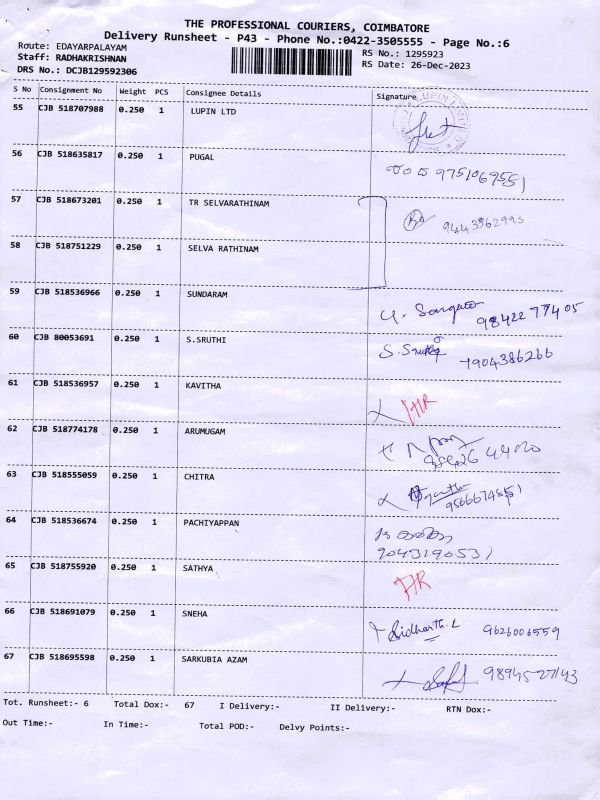 THE PROFESSIONAL COURIERS, COIMBATORE
Delivery Runsheet - P43 - Phone No.:0422-3505555 - Page No.:6
Route: EDAYARPALAYAM
RS No.: 1295923
Staff: RADHAKRISHNAN
RS Date: 26-Dec-2023
DRS No.: DCJB129592306
S No Consignment No Weight PCS Consignee Details Signature
55 CJB 518707988 0.250 1 LUPIN LTD
56 CJB 518635817 0.250 1 PUGAL
9751069551
57 CJB 518673201 0.250 1 TR SELVARATHINAM
9443362993
58 CJB 518751229 0.250 1 SELVA RATHINAM
59 CJB 518536966 0.250 1 SUNDARAM
98422 77405
60 CJB 80053691 0.250 1 S.SRUTHI
S. Sruthi 7904386266
61 CJB 518536957 0.250 1 KAVITHA
HR
62 CJB 518774178 0.250 1 ARUMUGAM
63 CJB 518555059 0.250 1 CHITRA
64 CJB 518536674 0.250 1 PACHIYAPPAN
9043190531
65 CJB 518755920 0.250 1 SATHYA
HR
66 CJB 518691079 0.250 1 SNEHA
Sidharth. L 9626006559
67 CJB 518695598 0.250 1 SARKUBIA AZAM
9894527143
Tot. Runsheet:- 6 Total Dox:- 67 I Delivery:- II Delivery:- RTN Dox:-
Out Time:- In Time:- Total POD:- Delvy Points:-